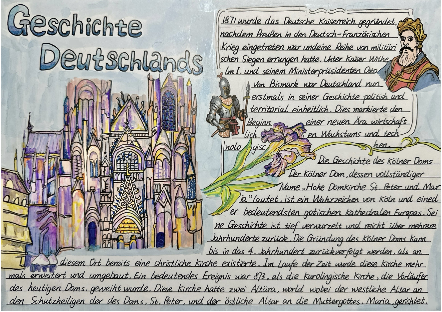 Geschichte
Deutschlands
1871 wurde das Deutsche Kaiserreich gegründet
nachdem Preußen in den Deutsch-Französischen
Krieg eingetreten war und eine Reihe von militäri
schen Siegen errungen hatte. Unter Kaiser Wilhe
lm I. und seinem Ministerpräsidenten Otto
von Bismarck war Deutschland nun
erstmals in seiner Geschichte politisch und
territorial einheitlich. Dies markierte den
Beginn einer neuen Ära wirtschaf
tlich en Wachstums und tech
nolo gisc hen
Die Geschichte des Kölner Doms
Der Kölner Dom, dessen vollständiger
Name "Hohe Domkirche St. Peter und Mar
ia" lautet, ist ein Wahrzeichen von Köln und eined
er bedeutendsten gotischen Kathedralen Europas. Sei
ne Geschichte ist tief verwurzelt und reicht über mehrere
Jahrhunderte zurück. Die Gründung des Kölner Doms kann
bis in das 4. Jahrhundert zurückverfolgt werden, als an
diesem Ort bereits eine christliche Kirche existierte. Im Laufe der Zeit wurde diese Kirche mehr
mals erweitert und umgebaut. Ein bedeutendes Ereignis war 873, als die Karolingische Kirche, die Vorläufer
des heutigen Doms, geweiht wurde. Diese Kirche hatte zwei Altäre, wobei der westliche Altar an
den Schutzheiligen der des Doms, St. Peter, und der östliche Altar an die Muttergottes, Maria, gerichtet.